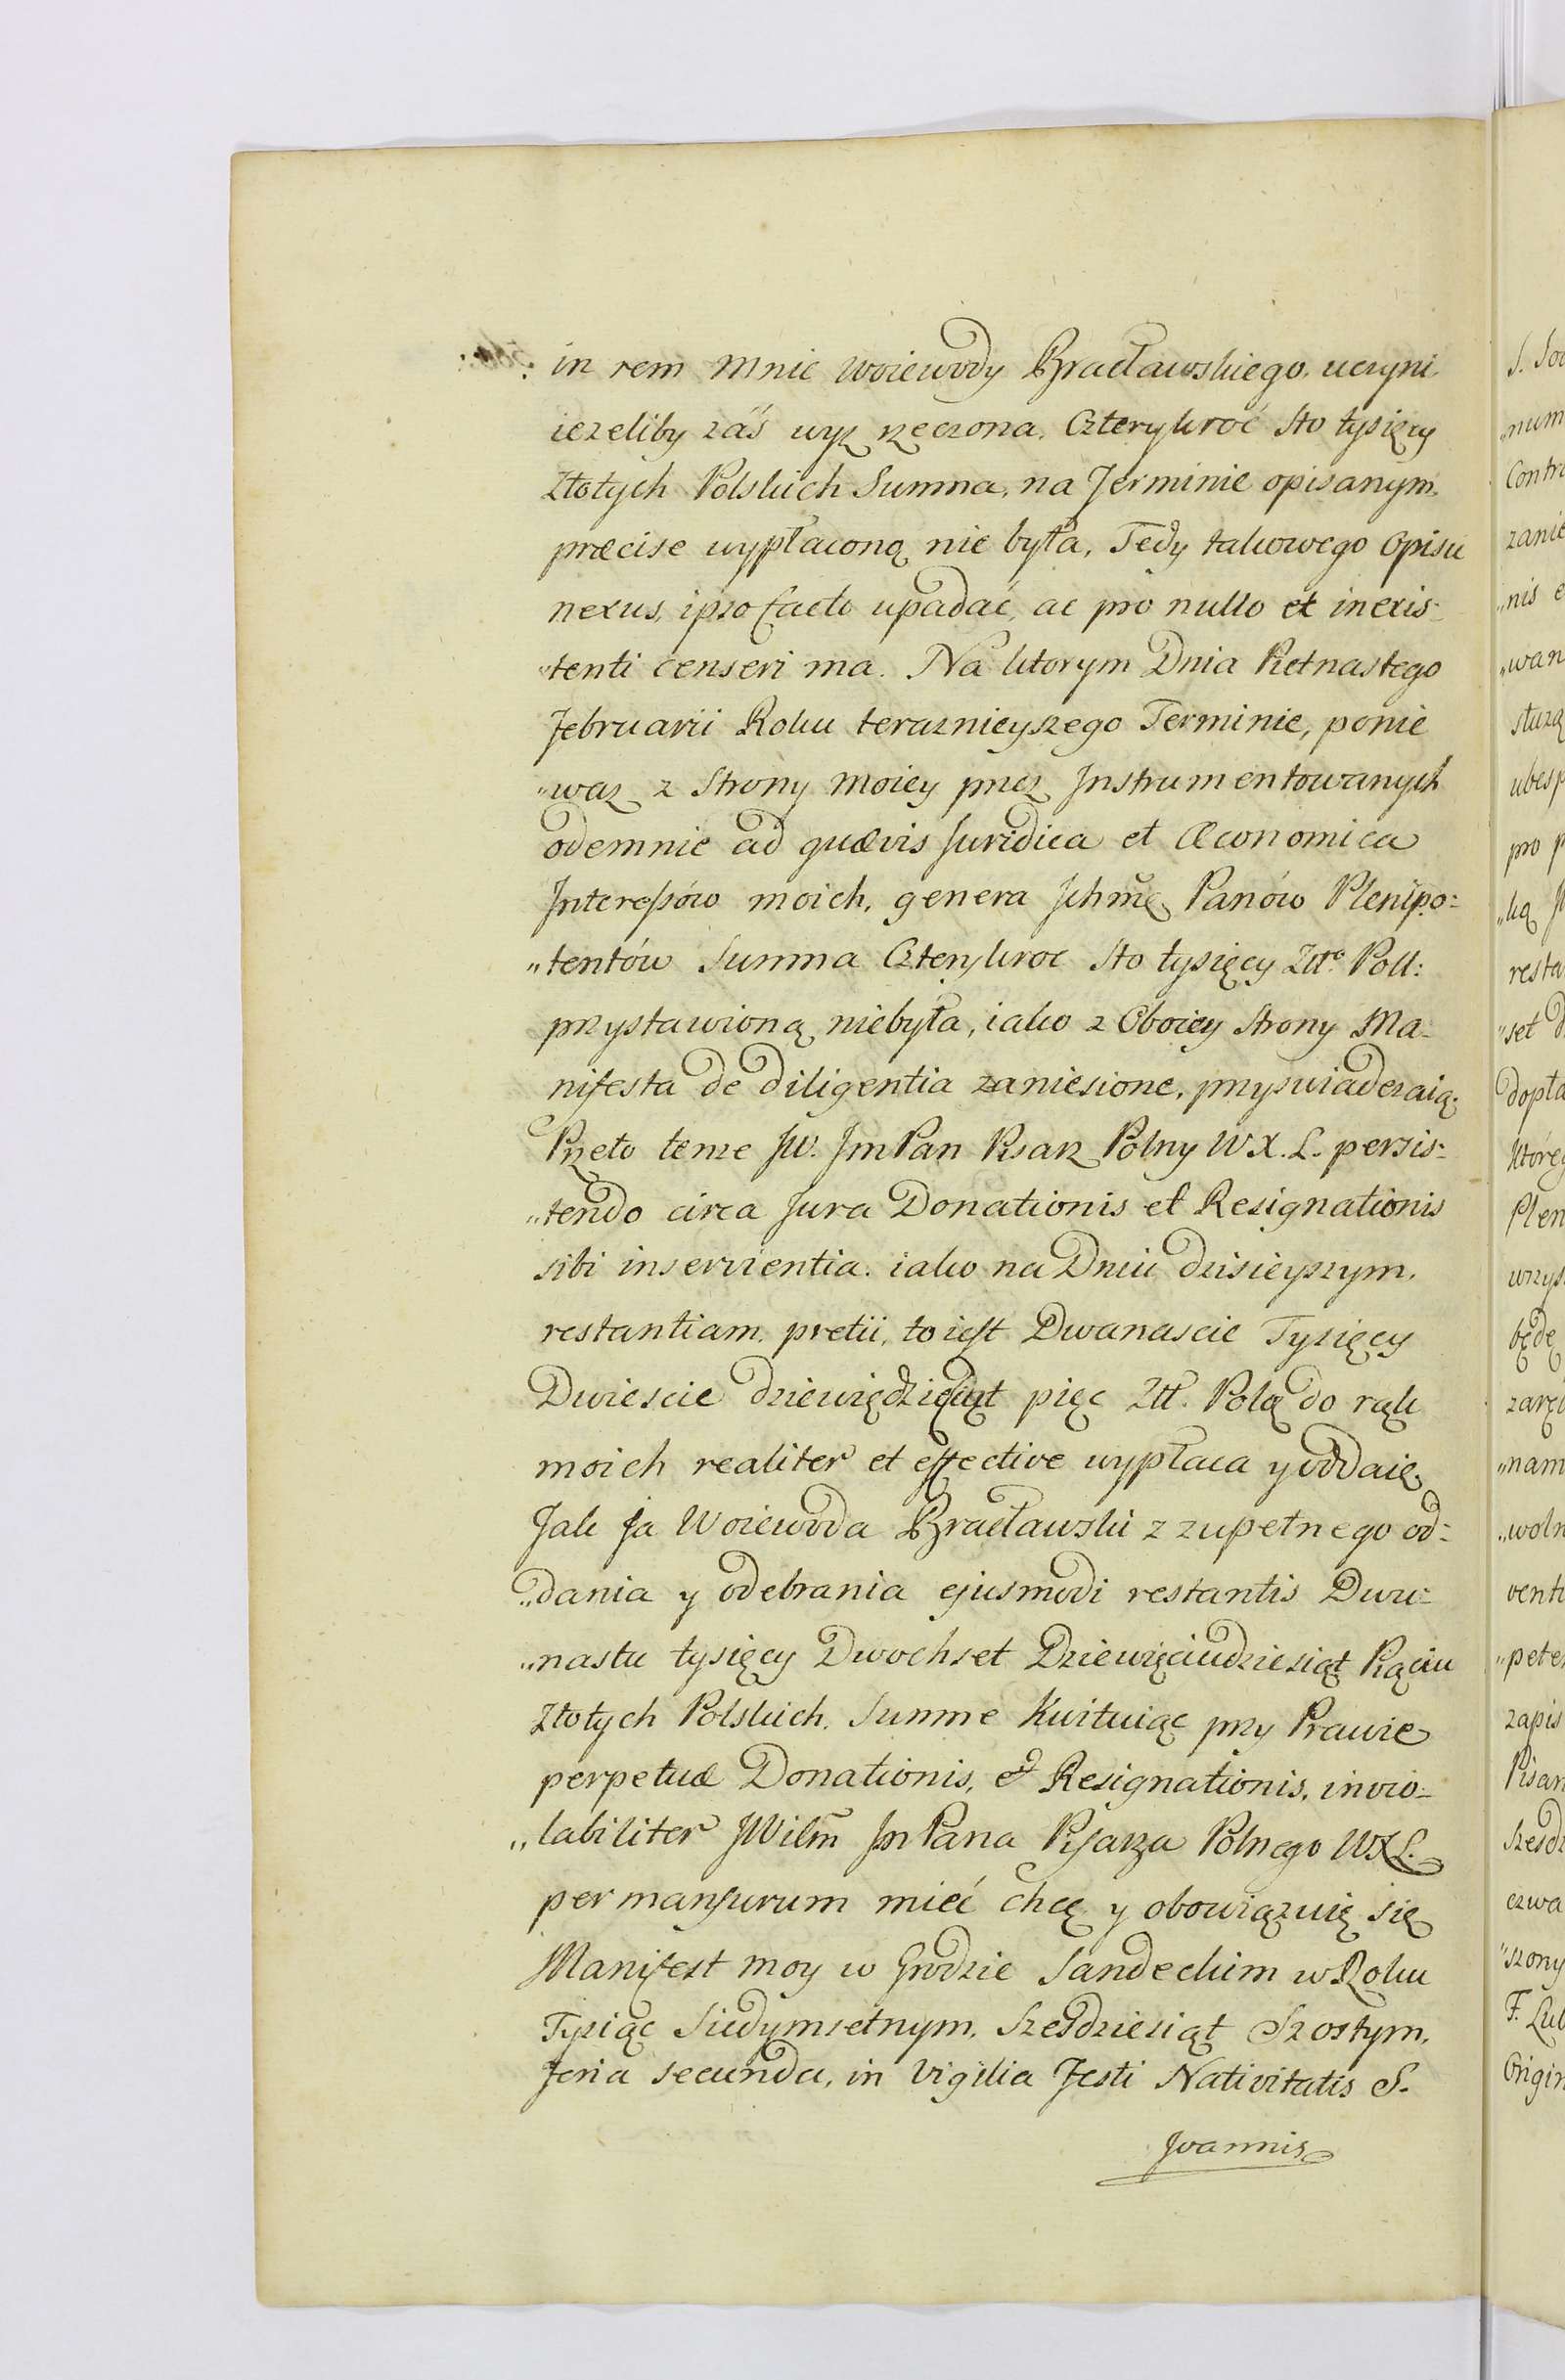 in rem mnie Woiewody Bracławskiego, uczyni
iezeliby záś wyż rzęczona, Czterykroć Sto tysięcy
Złotych Polskich Summa, na Terminie opisanym,
præcise wypłaconą nie była, Tedy takowego Opisu
nexus, ipso facto upadać, ac pro nullo et inexis-
„tenti censeri ma. Na ktorym Dnia Piętnastego
Februarii Roku teraznieyszego Terminie, ponie
„waz z Strony moiey przez Instrumentowanych
odemnie ad quævis Juridica et Œconomica
Interessów moich, genera Ichmę Panów Plenipo:
„tentów Summa Czterykroc sto tysięcy Złt. Poll:
przystawioną niebyła, iako z Oboiey Strony Ma-
nifesta de diligentia zaniesione, przyswiadczaią.
Przeto tenze JW. Jm Pan Pisarz Polny W X. L. persis-
„tendo circa Jura Donationis et Resignationis
sibi inservientia. iako na Dniu dzisieyszym,
restantiam pretii, to iest Dwanascie Tysięcy
Dwiescie dziewiędziesiąt pięc Złł. Polą do rąk
moich realiter et effective wypłaca y oddaię,
Jak Ja Woiewoda Bracławski z zupełnego od-
„dania y odebrania ejusmodi restantis Dwu-
„nastu tysięcy Dwochset Dziewięciudziesiąt Pięciu
Złotych Polskich, Summe Kwituiąc przy Prawie
perpetuæ Donationis, et Resignationis, invio-
„labiliter JWilm Jm Pana Pisarza Polnego WXL.
permansurum mieć chcę y obowiązuię się
Manifest moy w Grodzie Sandeckim w Roku
Tysiąc Siedymsetnym, Szesdziesiąt Szostym,
feria secunda, in Vigilia Festi Nativitatis S.
Joannis